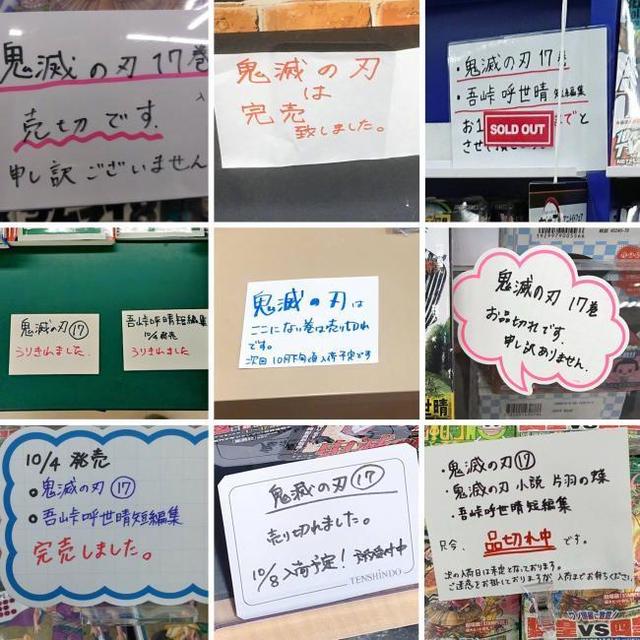 鬼滅の刃 17巻
売切です.
申し訳ございません
鬼滅の刃
は
完売
致しました。
・鬼滅の刃 17巻
・吾峠呼世晴短編集
お1 までと
させ
SOLD OUT
鬼滅の刃⑰
うりきれました.
吾峠呼世晴短編集
10/4発売
うりきれました
鬼滅の刃は
ここにない巻は売り切れ
です。
次回10月下旬頃入荷予定です
鬼滅の刃 17巻
お品切れです.
申し訳ありません.
10/4 発売
鬼滅の刃 ⑰
吾峠呼世晴短編集
完売しました。
鬼滅の刃⑰
売り切れました。
10/8入荷予定! 予約受付中
TENSHINDO
・鬼滅の刃⑰
・鬼滅の刃 小説 片羽の蝶
・吾峠呼世晴短編集
只今、品切れ中です。
次の入荷日は未定となっております。
ご迷惑をお掛けしておりますが入荷までお待ちください。
VS